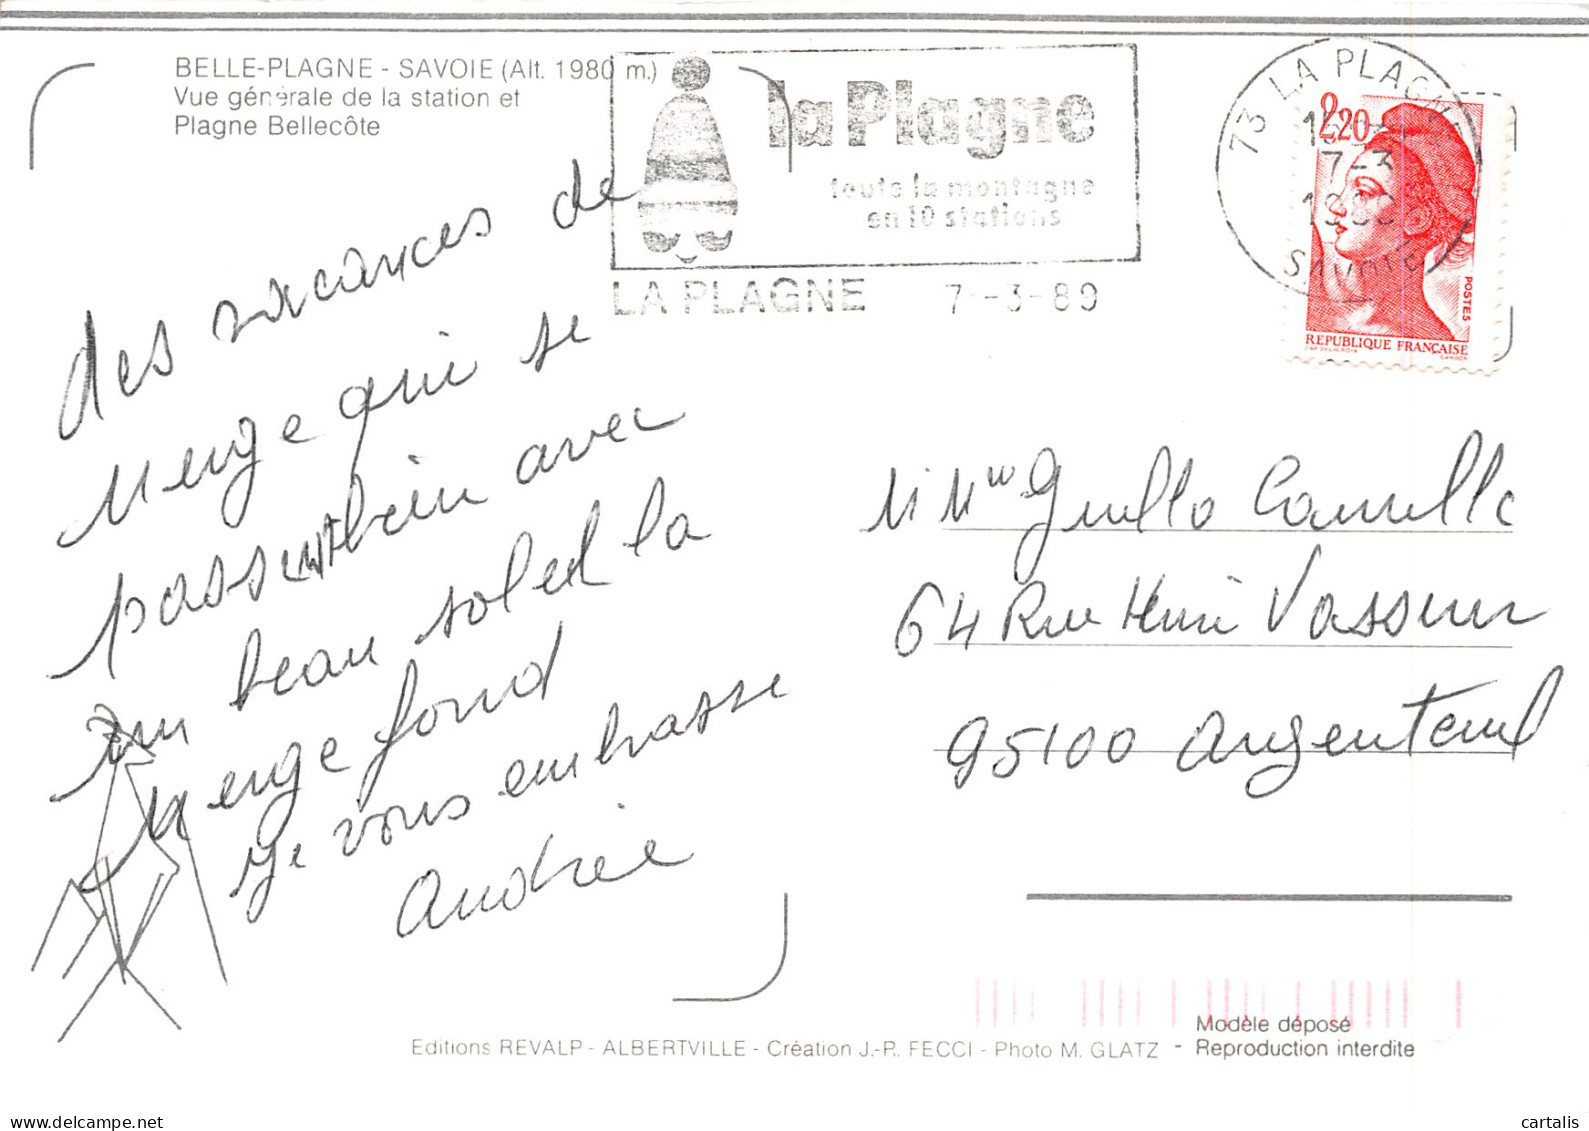 BELLE-PLAGNE - SAVOIE (Alt. 1980 m.)
Vue générale de la station et
Plagne Bellecôte
la Plagne
toute la montagne
en 10 stations
LA PLAGNE 7-3-89
73 LA PLAGNE
7-3
SAVOIE
2,20
POSTES
REPUBLIQUE FRANÇAISE
des vacances de
neige qui se
passent bien avec
un beau soleil la
neige fond
je vous embrasse
Andrée
M Mme Guello Camille
64 Rue Henri Vasseur
95100 Argenteuil
Editions REVALP - ALBERTVILLE - Création J.-P. FECCI - Photo M. GLATZ - Modèle déposé
Reproduction interdite
delcampe.net
cartalis